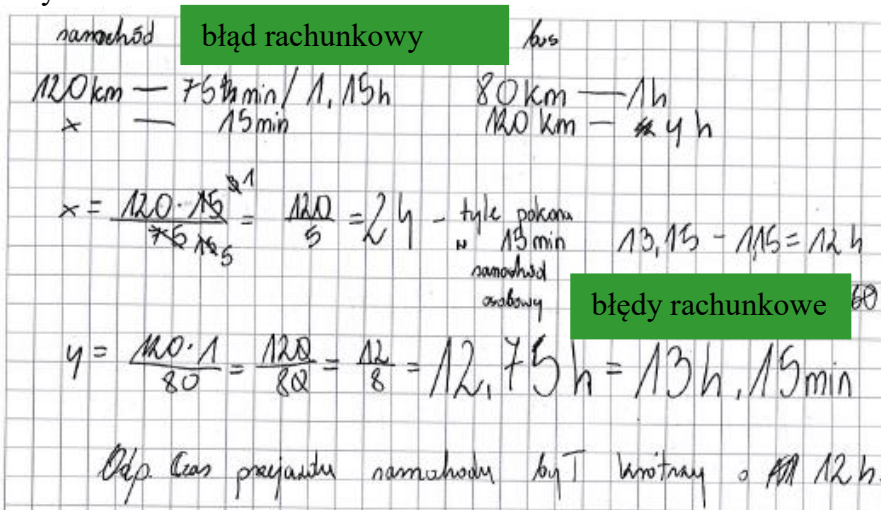 samochód błąd rachunkowy bus
120 km — 75 min / 1,15h 80 km — 1h
x — 15min 120 km — y h
x = 120·15 / 75 15 5 = 120 / 5 = 24 - tyle pokona
w 15 min 13,15 - 1,15 = 12 h
samochód
osobowy błędy rachunkowe 60
y = 120·1 / 80 = 120 / 80 = 12 / 8 = 12,75 h = 13 h, 15 min
Odp. Czas przejazdu samochody był krótszy o 12 h.